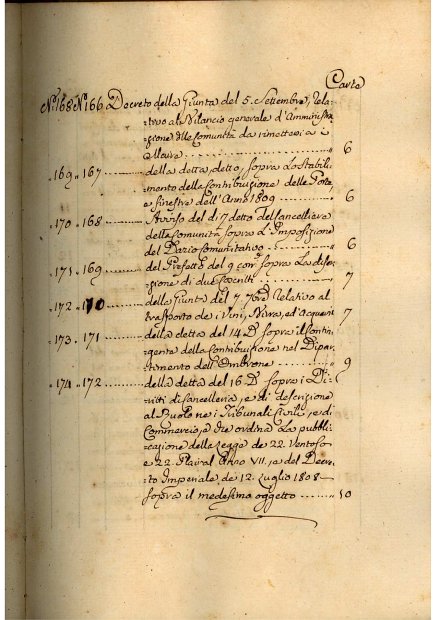 Carte
N.168 N.166 Decreto della Giunta del 5. Settembre, rela-
-tivo al Bilancio generale d'Amministra-
-zione delle Comunità da rimettersi a i
Maire ............ " 6
" 169 " 167 ...... della detta, detto, sopra lo stabili-
-mento della Contribuzione delle Porte,
e finestre dell'Anno 1809 ........ " 6
" 170 " 168 ...... Avviso del dì 7 detto del Cancelliere
della Comunità sopra l'Imposizione
del Dazio Comunitativo ...... " 6
" 171 " 169 ...... del Prefetto del 9 con.e sopra la diser-
-zione di due Coscritti ...... " 7
" 172 " 170 ...... della Giunta del 7. 7bre relativo al
trasporto de i Vini, Birra, ed Acquavite " 7
" 173 " 171 ...... della detta del 14 D.o sopra il Contin-
-gente della Contribuzione nel Dipar-
-timento dell'Ombrone ...... " 9
" 174 " 172 ...... della detta del 16 D.o sopra i Di-
-ritti di Cancelleria, e di descrizione
al Ruolo ne i Tribunali Civili, e di
Commercio, e che ordina la pubbli-
-cazione della Legge de 22. Ventoso
e 22. Plairal Anno VII, e del Decre-
-to Imperiale de 12. Luglio 1808-
sopra il medesimo oggetto ...... " 10